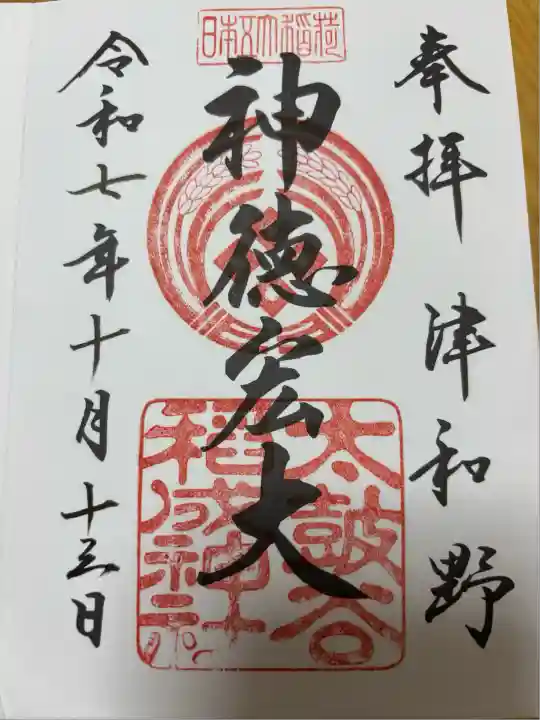 奉拝 津和野
日本五大稲荷
神徳宏大
太皷谷
稲成神社
令和七年十月十三日